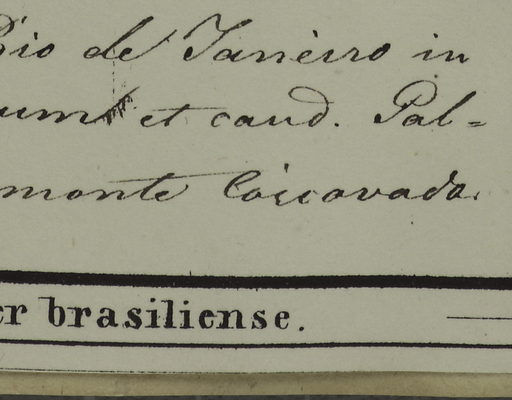 Rio de Janeiro in
um et caud. Pal-
monte Coicovado.
er brasiliense.